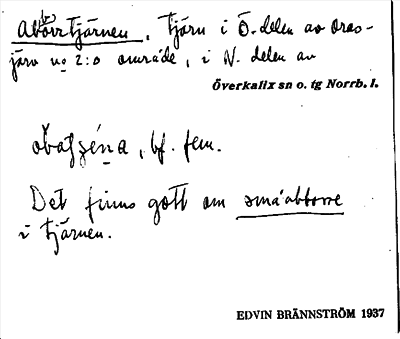 Abborrtjärnen, tjärn i Ö. delen av Oras-
järv no 2:o område, i N. delen av
Överkalix sn o. tg Norrb. l.
, bf. fem.
Det finns gott om småabborre
i tjärnen.
EDVIN BRÄNNSTRÖM 1937